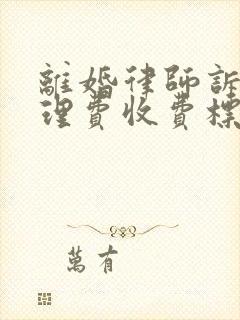 離婚律師訴
理費收費標
萬有